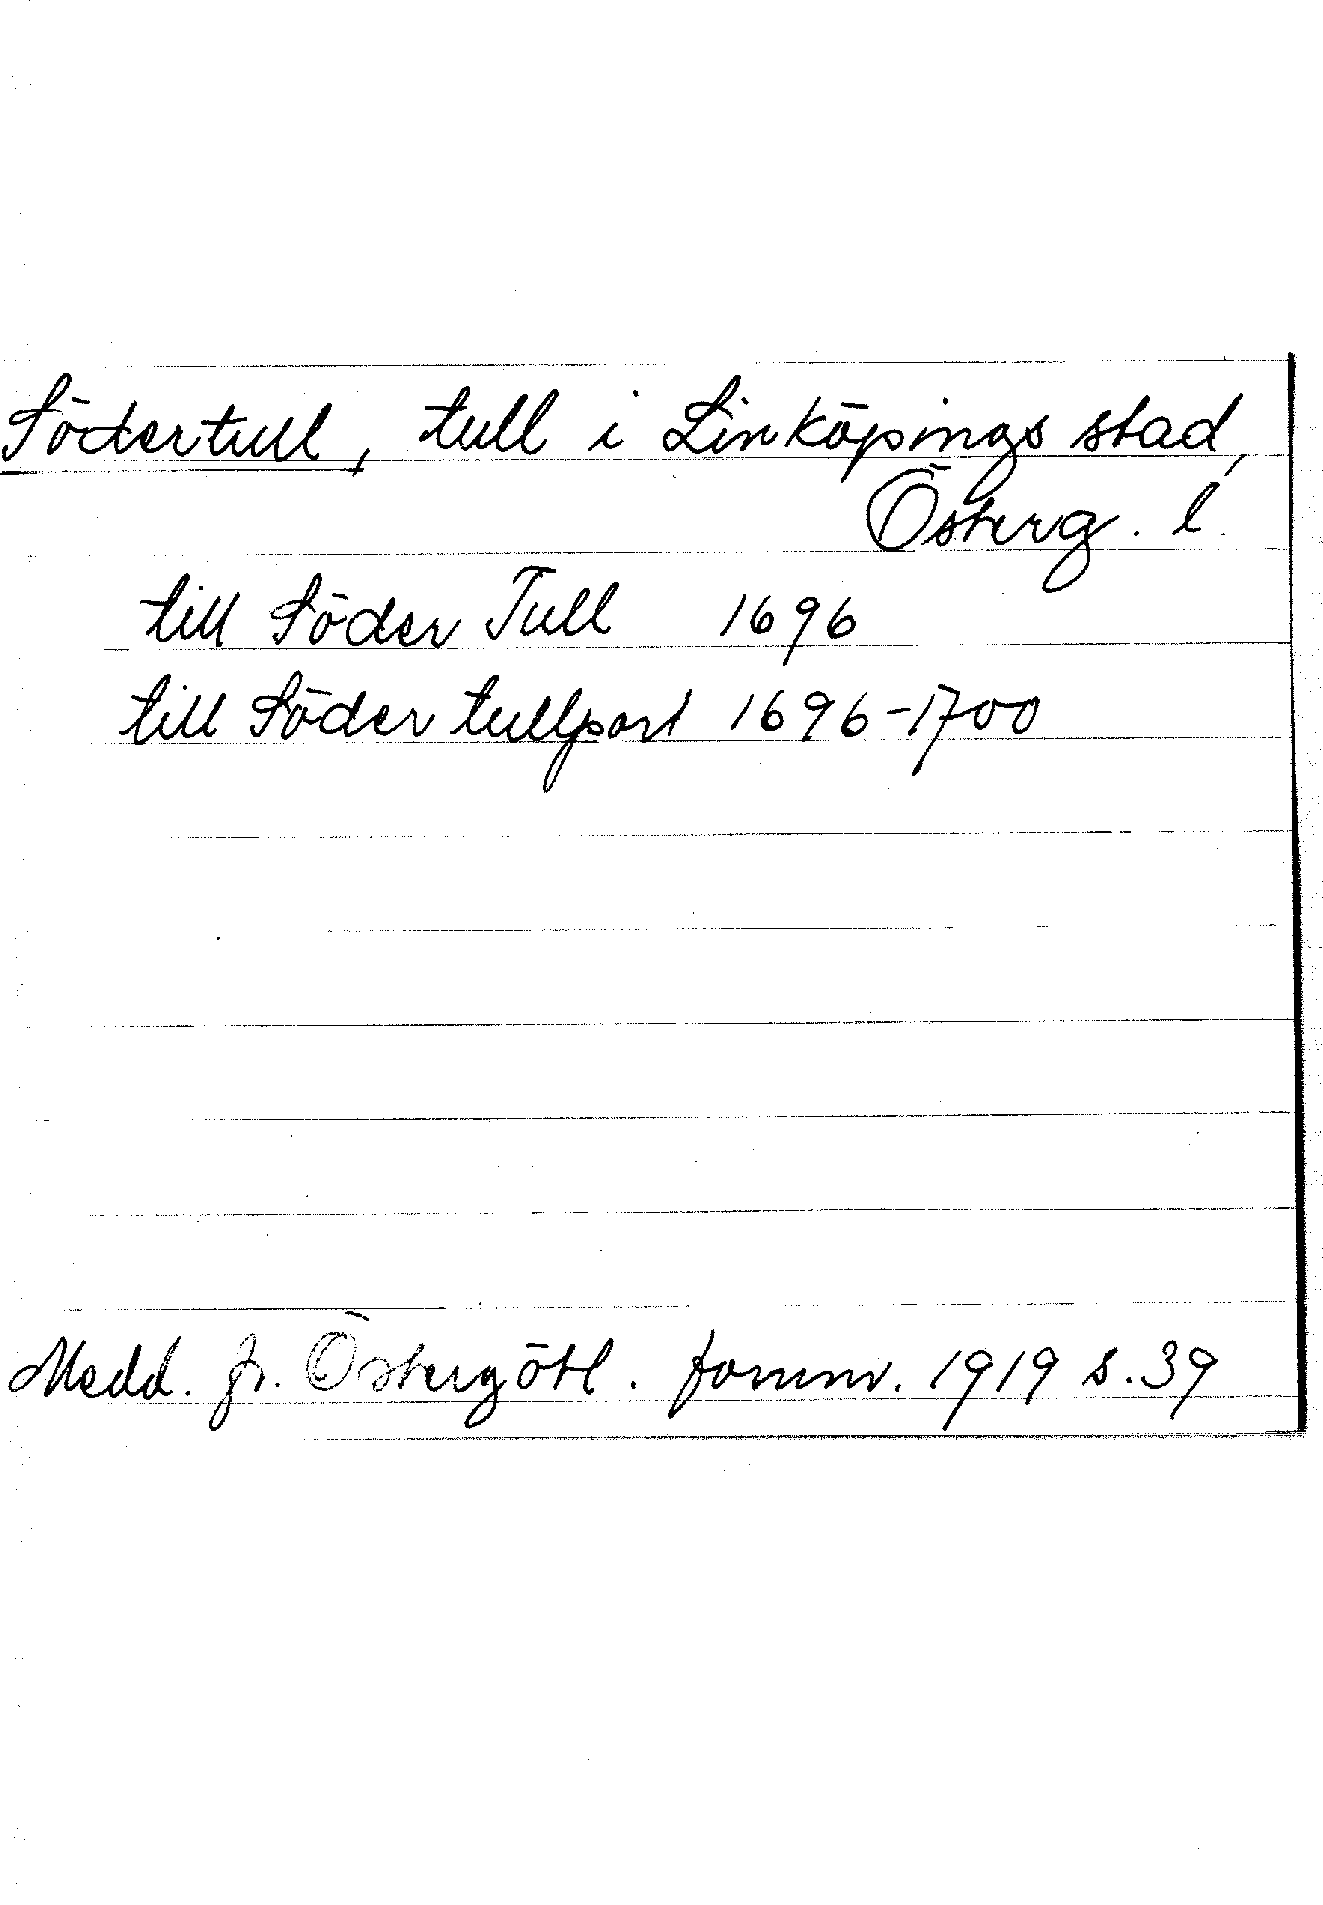 Södertull, tull i Linköpings stad,
Österg. l.
till Söder Tull 1696
till Söder tullport 1696-1700
Medd. fr. Östergötl. fornm. 1919 s. 39